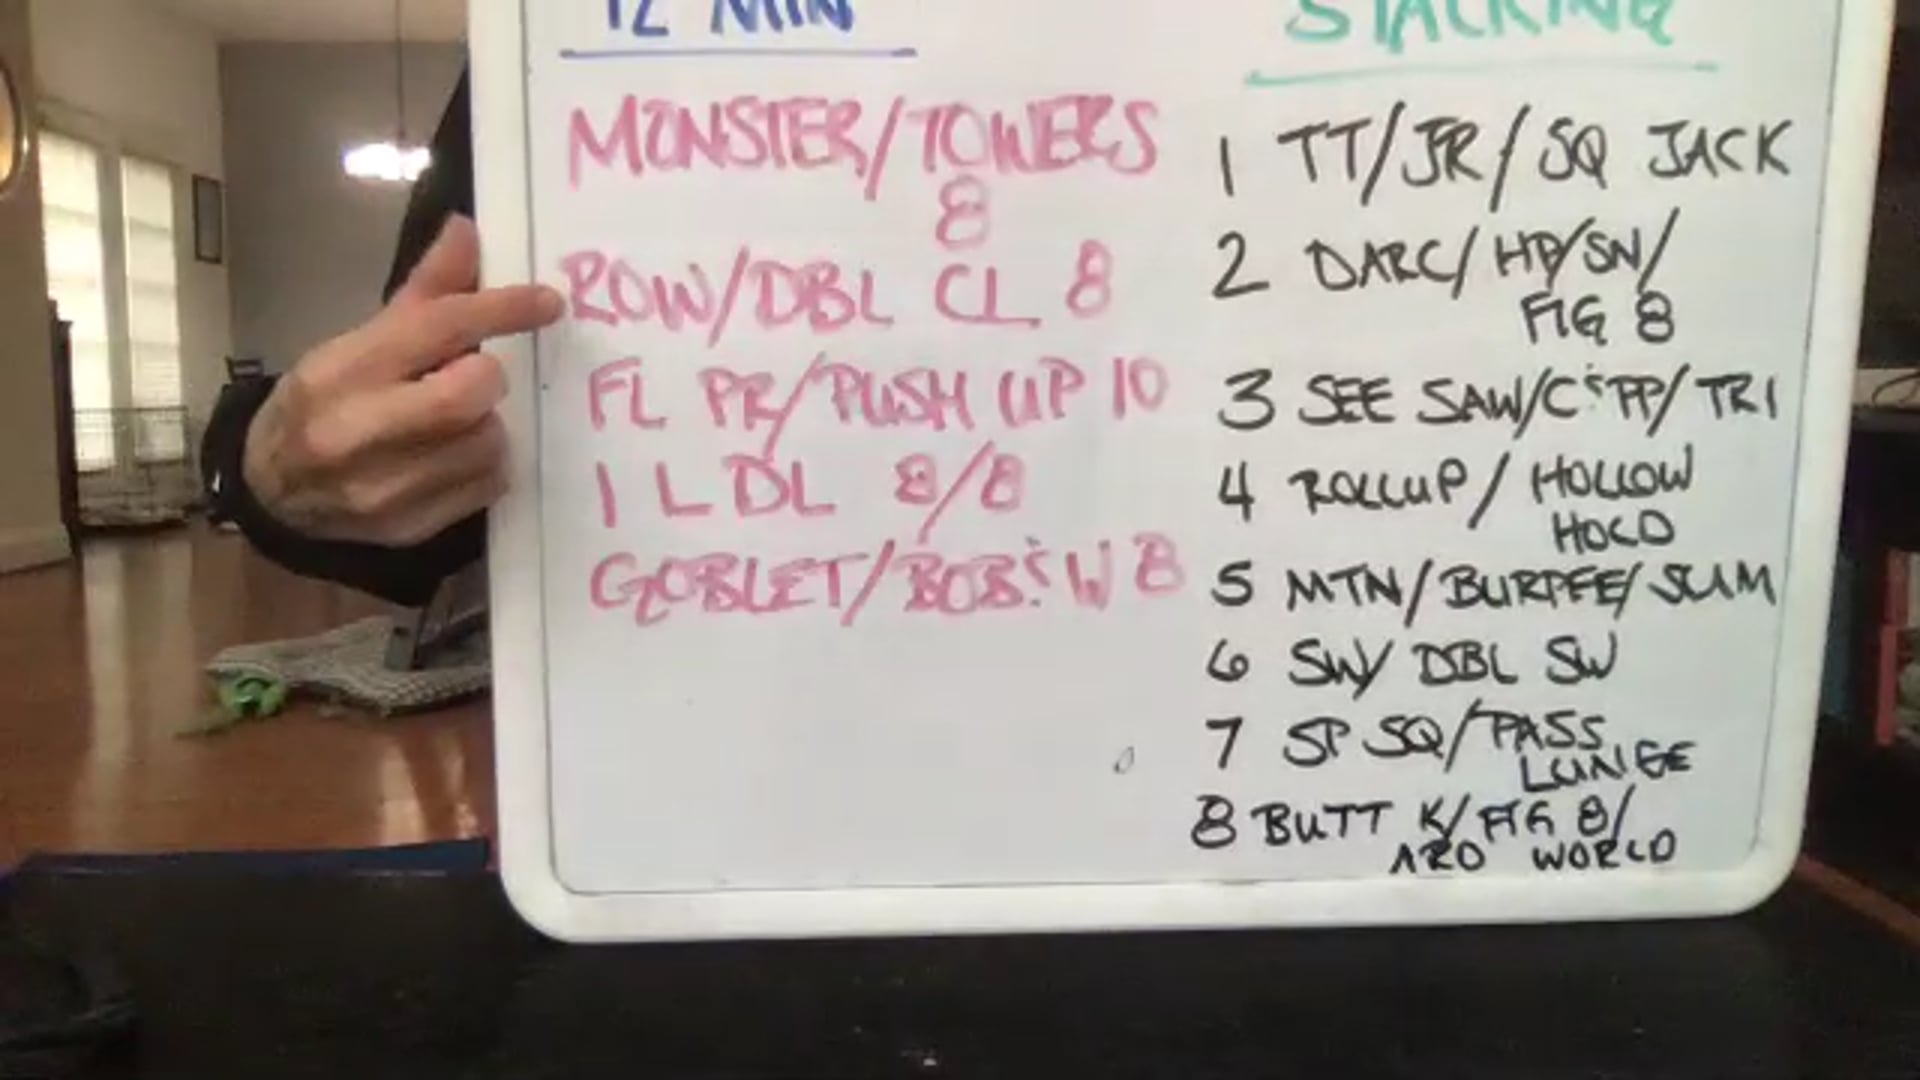 12 MIN
MONSTER/TOWERS
8
ROW/DBL CL 8
FL PR/PUSH UP 10
1 L DL 8/8
GOBLET/BOB & W 8
STACKING
1 TT/JR/SQ JACK
2 DARC/HP/SN/
FIG 8
3 SEE SAW/C & PP/TRI
4 ROLLUP/HOLLOW
HOLD
5 MTN/BURPEE/SUM
6 SW/DBL SW
7 SP SQ/PASS
LUNGE
8 BUTT K/FIG 8/
ARO WORLD